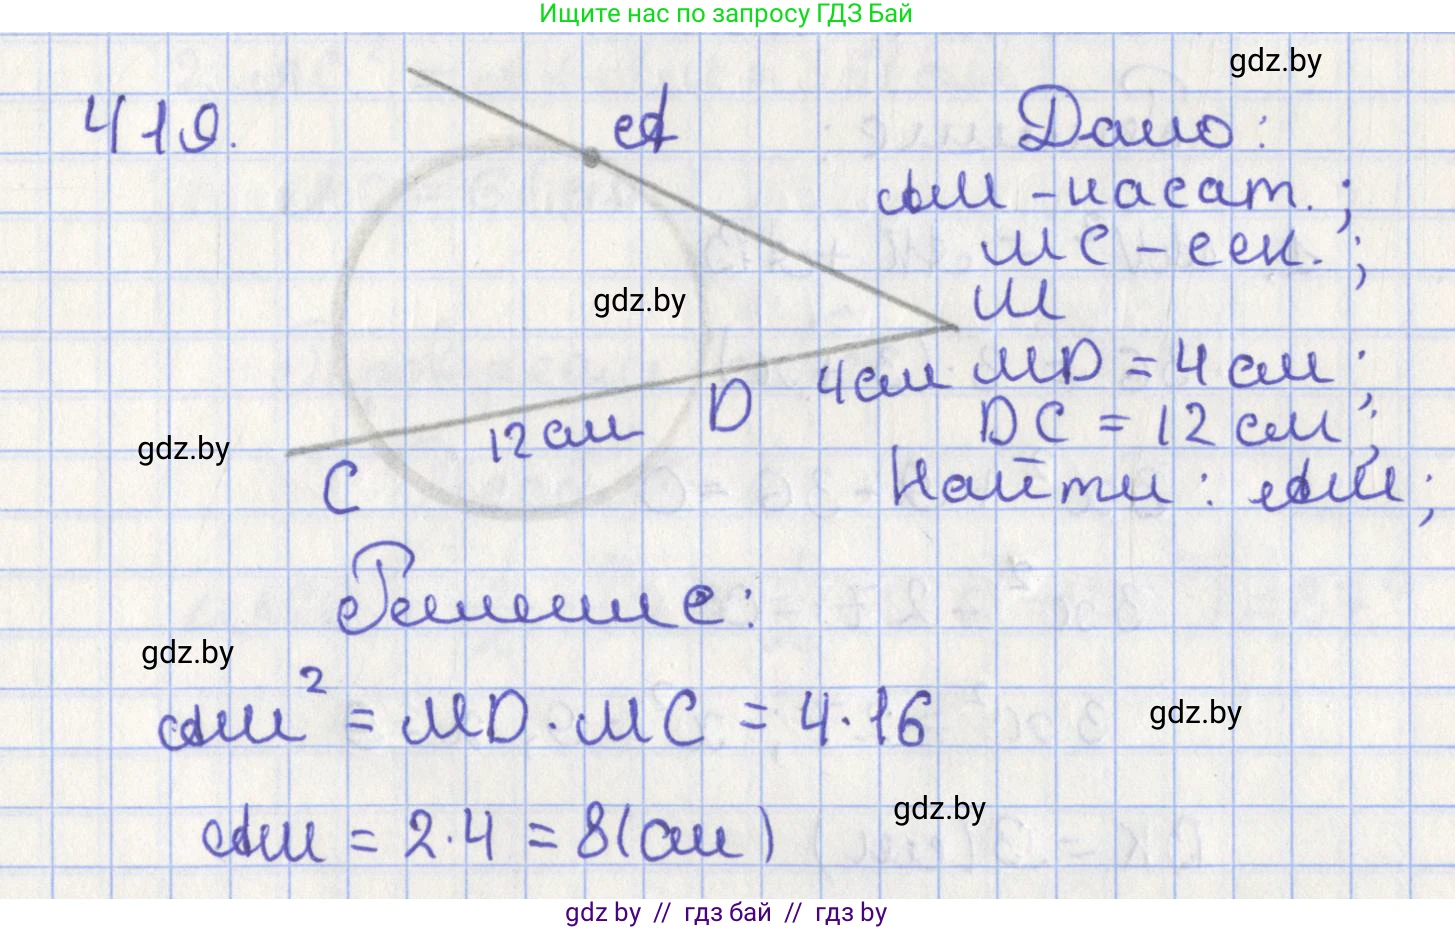 Ищите нас по запросу ГДЗ Бай
gdz.by
419.
A
Дано:
AM - касат.;
MC - сек.;
gdz.by
M
4 см
MD = 4 см;
D
12 см
DC = 12 см;
gdz.by
C
Найти: AM;
Решение:
gdz.by
AM² = MD · MC = 4 · 16
gdz.by
gdz.by
AM = 2 · 4 = 8 (см)
gdz by // гдз бай // гдз by